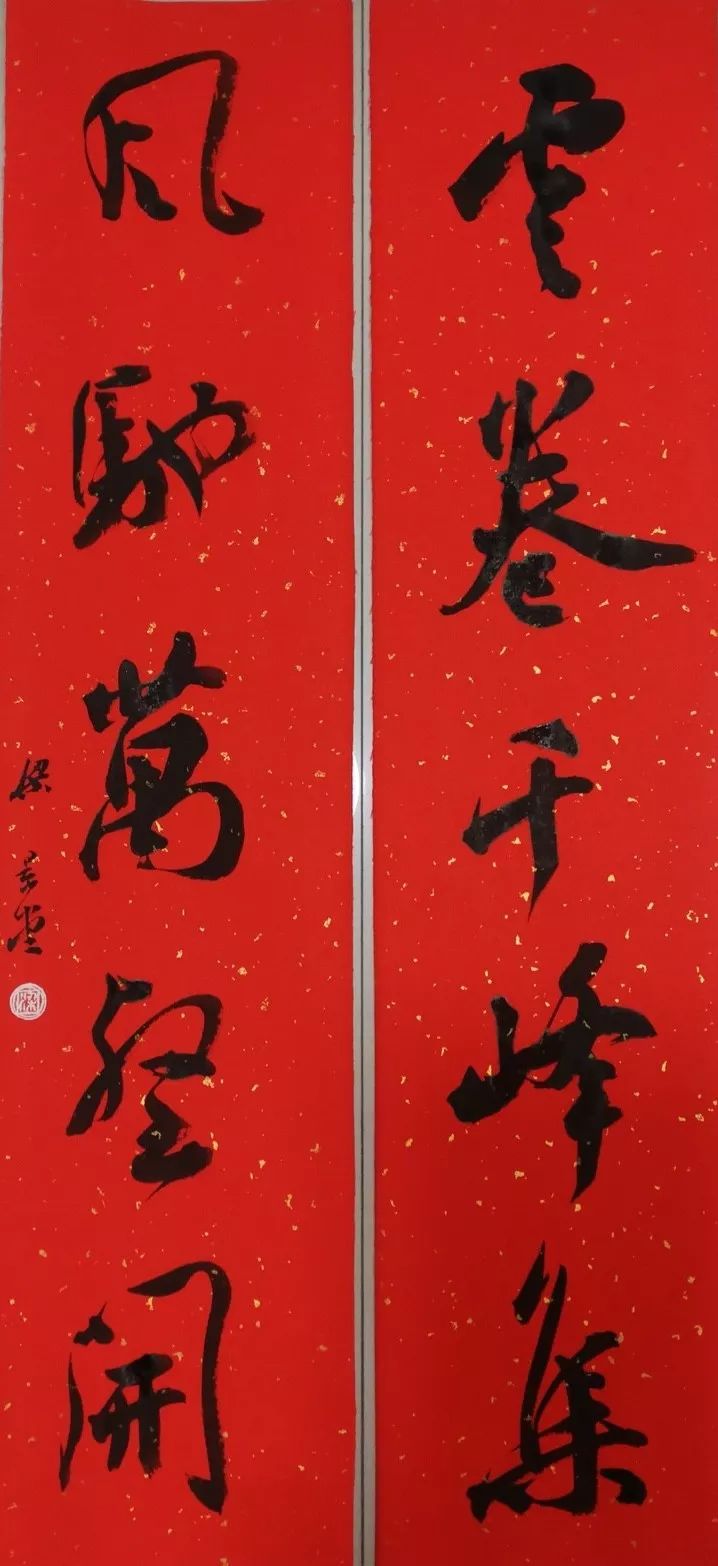 雲卷千峰集
風馳萬壑開
梁